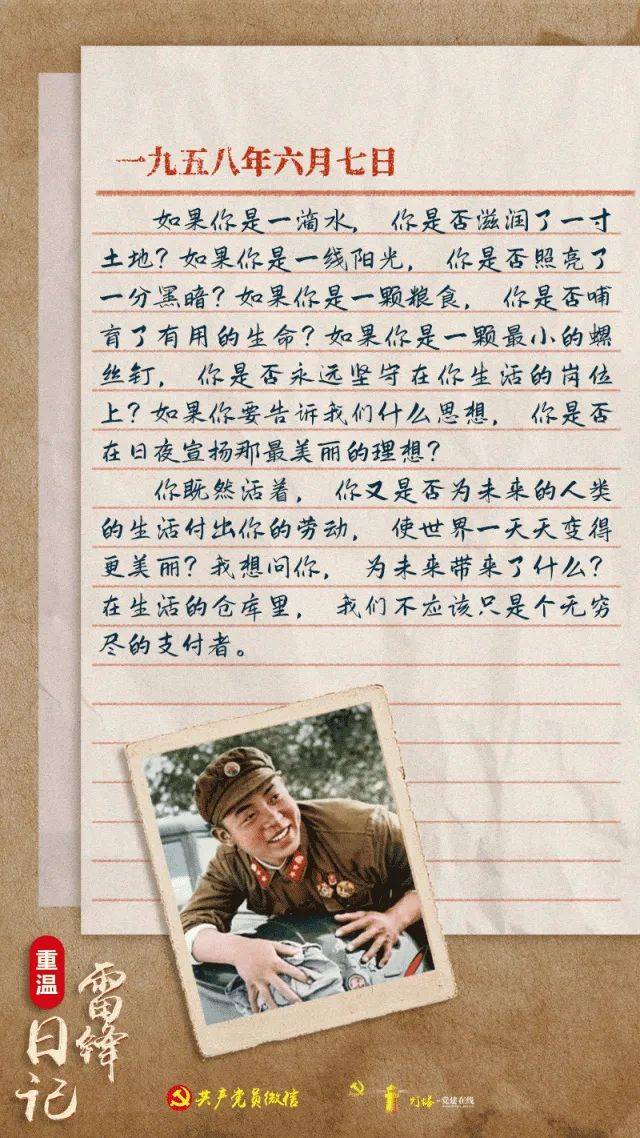 一九五八年六月七日
如果你是一滴水，你是否滋润了一寸
土地？如果你是一线阳光，你是否照亮了
一分黑暗？如果你是一颗粮食，你是否哺
育了有用的生命？如果你是一颗最小的螺
丝钉，你是否永远坚守在你生活的岗位
上？如果你要告诉我们什么思想，你是否
在日夜宣扬那最美丽的理想？
你既然活着，你又是否为未来的人类
的生活付出你的劳动，使世界一天天变得
更美丽？我想问你，为未来带来了什么？
在生活的仓库里，我们不应该只是个无穷
尽的支付者。
重温
雷锋
日记
共产党员微信
灯塔-党建在线